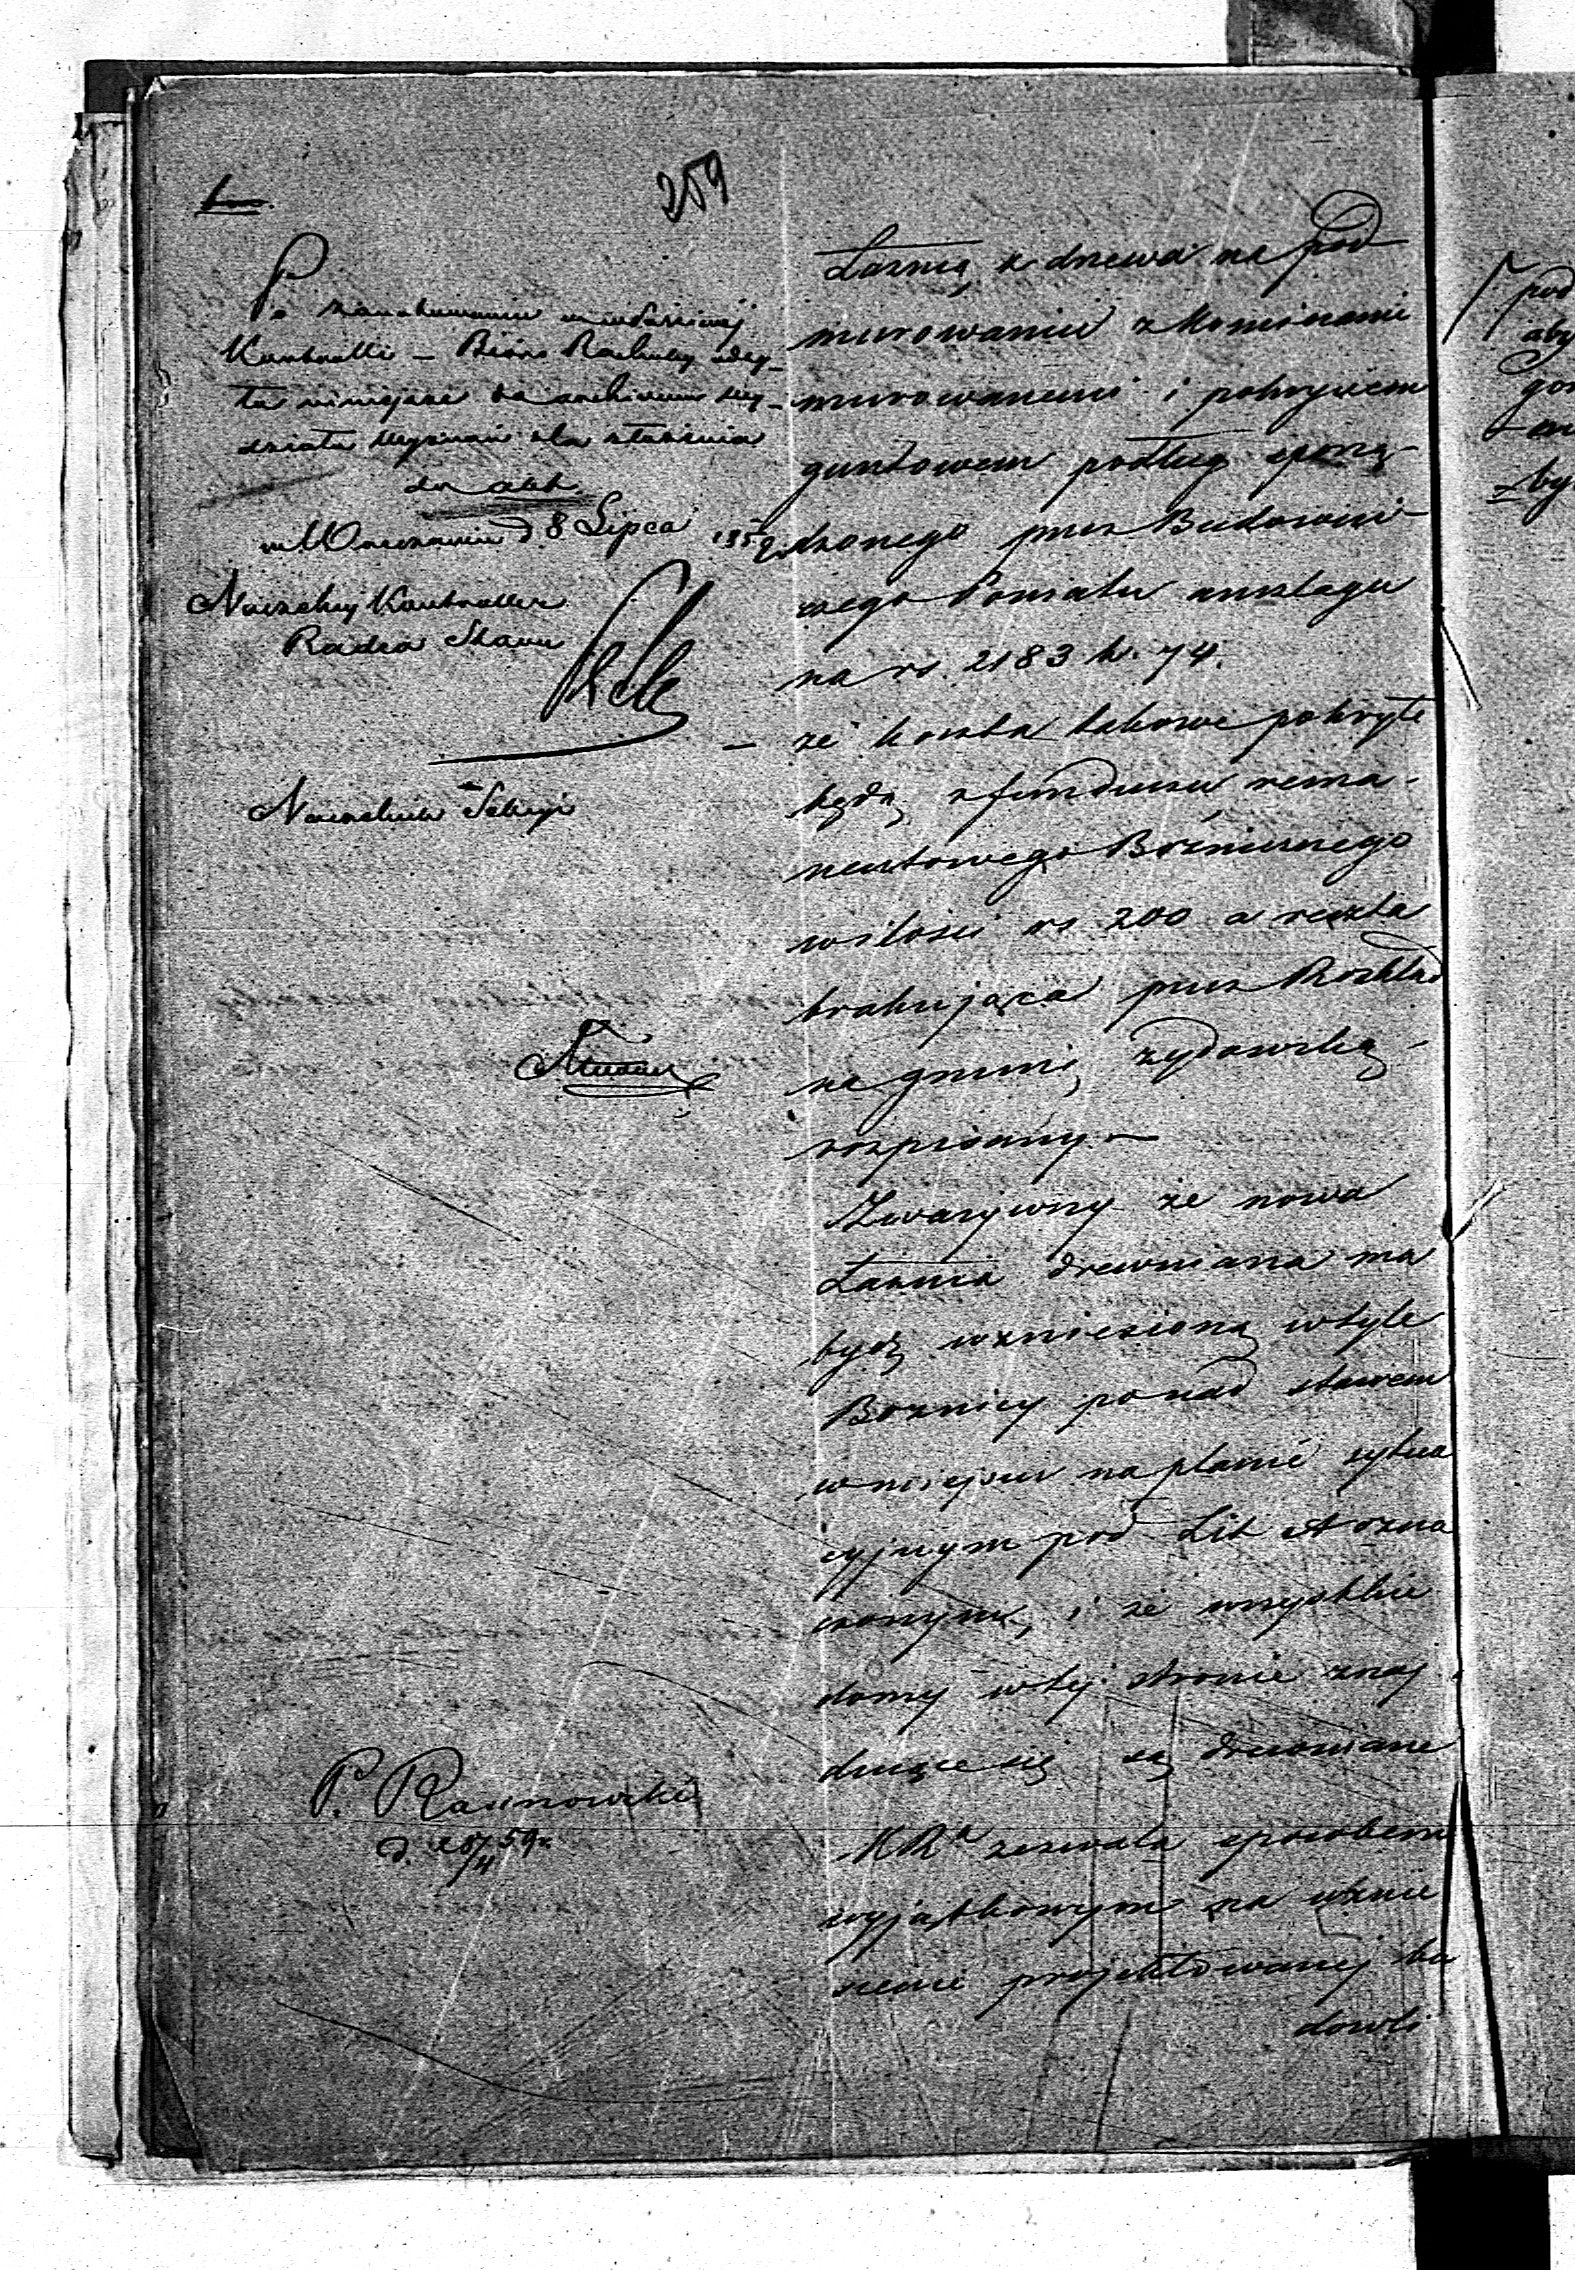 259
Po zanotowaniu w właściwej
Kontrolli – Bióro Rachuby odsy-
ła niniejsze do archiwum Wy-
działu Wyznań dla złożenia
do akt.
w Warszawie d 8 Lipca 1859
Naczelny Kontroller
Radca Stanu
Naczelnik Sekcyi
P. Rasmowski
d. 28/4 59 r.
Łaznią z drzewa na pod
murowaniu z kominami
murowanemi i pokryciem
guntowem podług sporzą-
dzonego przez Budowni-
czego Powiatu anszlagu
na rs. 2183 k. 74.
– że koszta takowe pokryte
będą z funduszu rema-
nentowego Bóżnicznego
w ilości rs 200 a reszta
brakująca przez Rozkład
na gminę żydowską
rozpisany. –
Zważywszy że nowa
Łaznia drewniana ma
bydź wzniesioną w tyle
Bożnicy ponad stawem
w miejscu na planie sytua
cyjnym pod Lit A ozna
czonym, i że wszystkie
domy w tej stronie znaj
dujące się są drewniane
KRa zezwala sposobem
wyjątkowym na wznie
sienie projektowanej bu
dowli
pod
aby